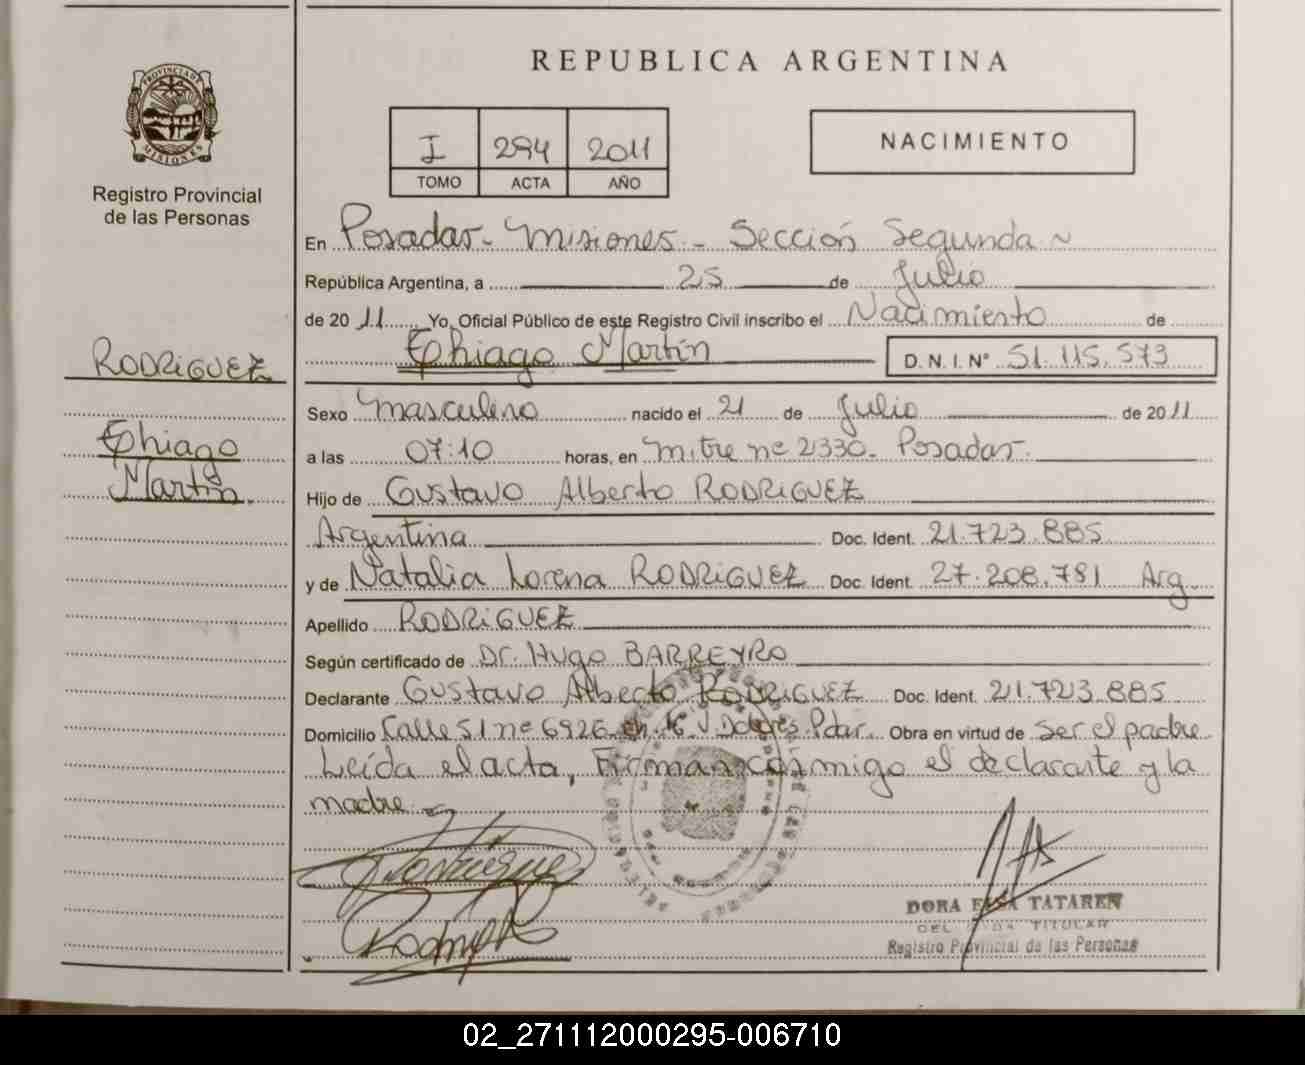 REPUBLICA ARGENTINA
PROVINCIA DE MISIONES
Registro Provincial
de las Personas
I 294 2011
TOMO ACTA AÑO
NACIMIENTO
En Posadas - Misiones - Sección Segunda ~
República Argentina, a 25 de Julio
de 2011 Yo, Oficial Público de este Registro Civil inscribo el Nacimiento de
Thiago Martín D.N.I. Nº 51.115.573
RODRIGUEZ
Thiago
Martín.
Sexo Masculino nacido el 21 de Julio de 2011
a las 07:10 horas, en Mitre nº 2330 - Posadas.
Hijo de Gustavo Alberto RODRIGUEZ
Argentina Doc. Ident. 21.723.885
y de Natalia Lorena RODRIGUEZ Doc. Ident. 27.208.781 Arg.
Apellido RODRIGUEZ
Según certificado de Dr. Hugo BARREYRO
Declarante Gustavo Alberto RODRIGUEZ Doc. Ident. 21.723.885
Domicilio Calle 51 nº 6926 Dolores Pdas. Obra en virtud de ser el padre
Leída el acta, Firman conmigo el declarante y la
madre
DORA TATAREN
TITULAR
Registro Provincial de las Personas
02_271112000295-006710